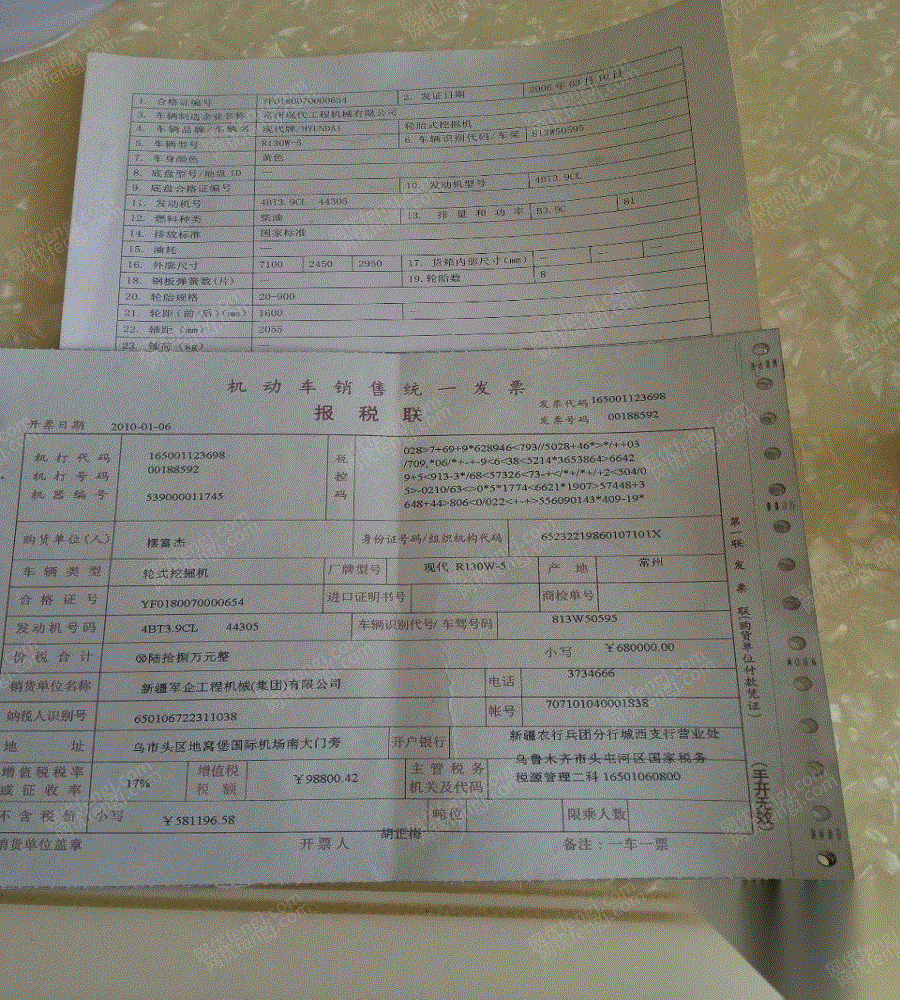 1. 合格证编号 YF0180070000654 2. 发证日期 2006 年 03 月 16 日
3. 车辆制造企业名称 常州现代工程机械有限公司
4. 车辆品牌/车辆名 现代牌/HYUNDAI 轮胎式挖掘机
5. 车辆型号 R130W-5 6.车辆识别代码/车架 813W50595
7. 车身颜色 黄色
8. 底盘型号/底盘 ID —
9. 底盘合格证编号 10. 发动机型号 4BT3.9CL
11. 发动机号 4BT3.9CL 44305
12. 燃料种类 柴油 13. 排量和功率 B3.9C 81
14. 排放标准 国家标准
15. 油耗 —
16. 外廓尺寸 7100 2450 2950 17. 货箱内部尺寸(mm) — — —
18. 钢板弹簧数(片) — 19.轮胎数 8
20. 轮胎规格 20-900
21. 轮距(前/后)(mm) 1600
22. 轴距 (mm) 2055
23. 轴荷 (kg) —
机动车销售统一发票
报税联
发票代码 165001123698
发票号码 00188592
开票日期 2010-01-06
机打代码 165001123698
机打号码 00188592
机器编号 539000011745
税控码
028>7+69+9*628946<793//5028+46*>*/++03
/709,*06/*+-+-9<6<38<5214*3653864>6642
9+5<913-3*/68<57326<73-+</*+/*+/+2<504/0
5>-0210/63<>0*5*1774<6621*1907>57448+3
648+44>806<0/022<+-+>556090143*409-19*
购货单位(人) 摆富杰 身份证号码/组织机构代码 65232219860107101X
车辆类型 轮式挖掘机 厂牌型号 现代 R130W-5 产地 常州
合格证号 YF0180070000654 进口证明书号 商检单号
发动机号码 4BT3.9CL 44305 车辆识别代号/车驾号码 813W50595
价税合计 ⊗陆拾捌万元整 小写 ￥680000.00
销货单位名称 新疆军企工程机械(集团)有限公司 电话 3734666
纳税人识别号 650106722311038 帐号 707101040001838
地址 乌市头区地窝堡国际机场南大门旁 开户银行 新疆农行兵团分行城西支行营业处
增值税税率或征收率 17% 增值税税额 ￥98800.42 主管税务机关及代码 乌鲁木齐市头屯河区国家税务
税源管理二科 16501060800
不含税价 小写 ￥581196.58 吨位 限乘人数
销货单位盖章 开票人 胡正梅 备注：一车一票
第 联 发票联(购货单位付款凭证)
(手开无效)